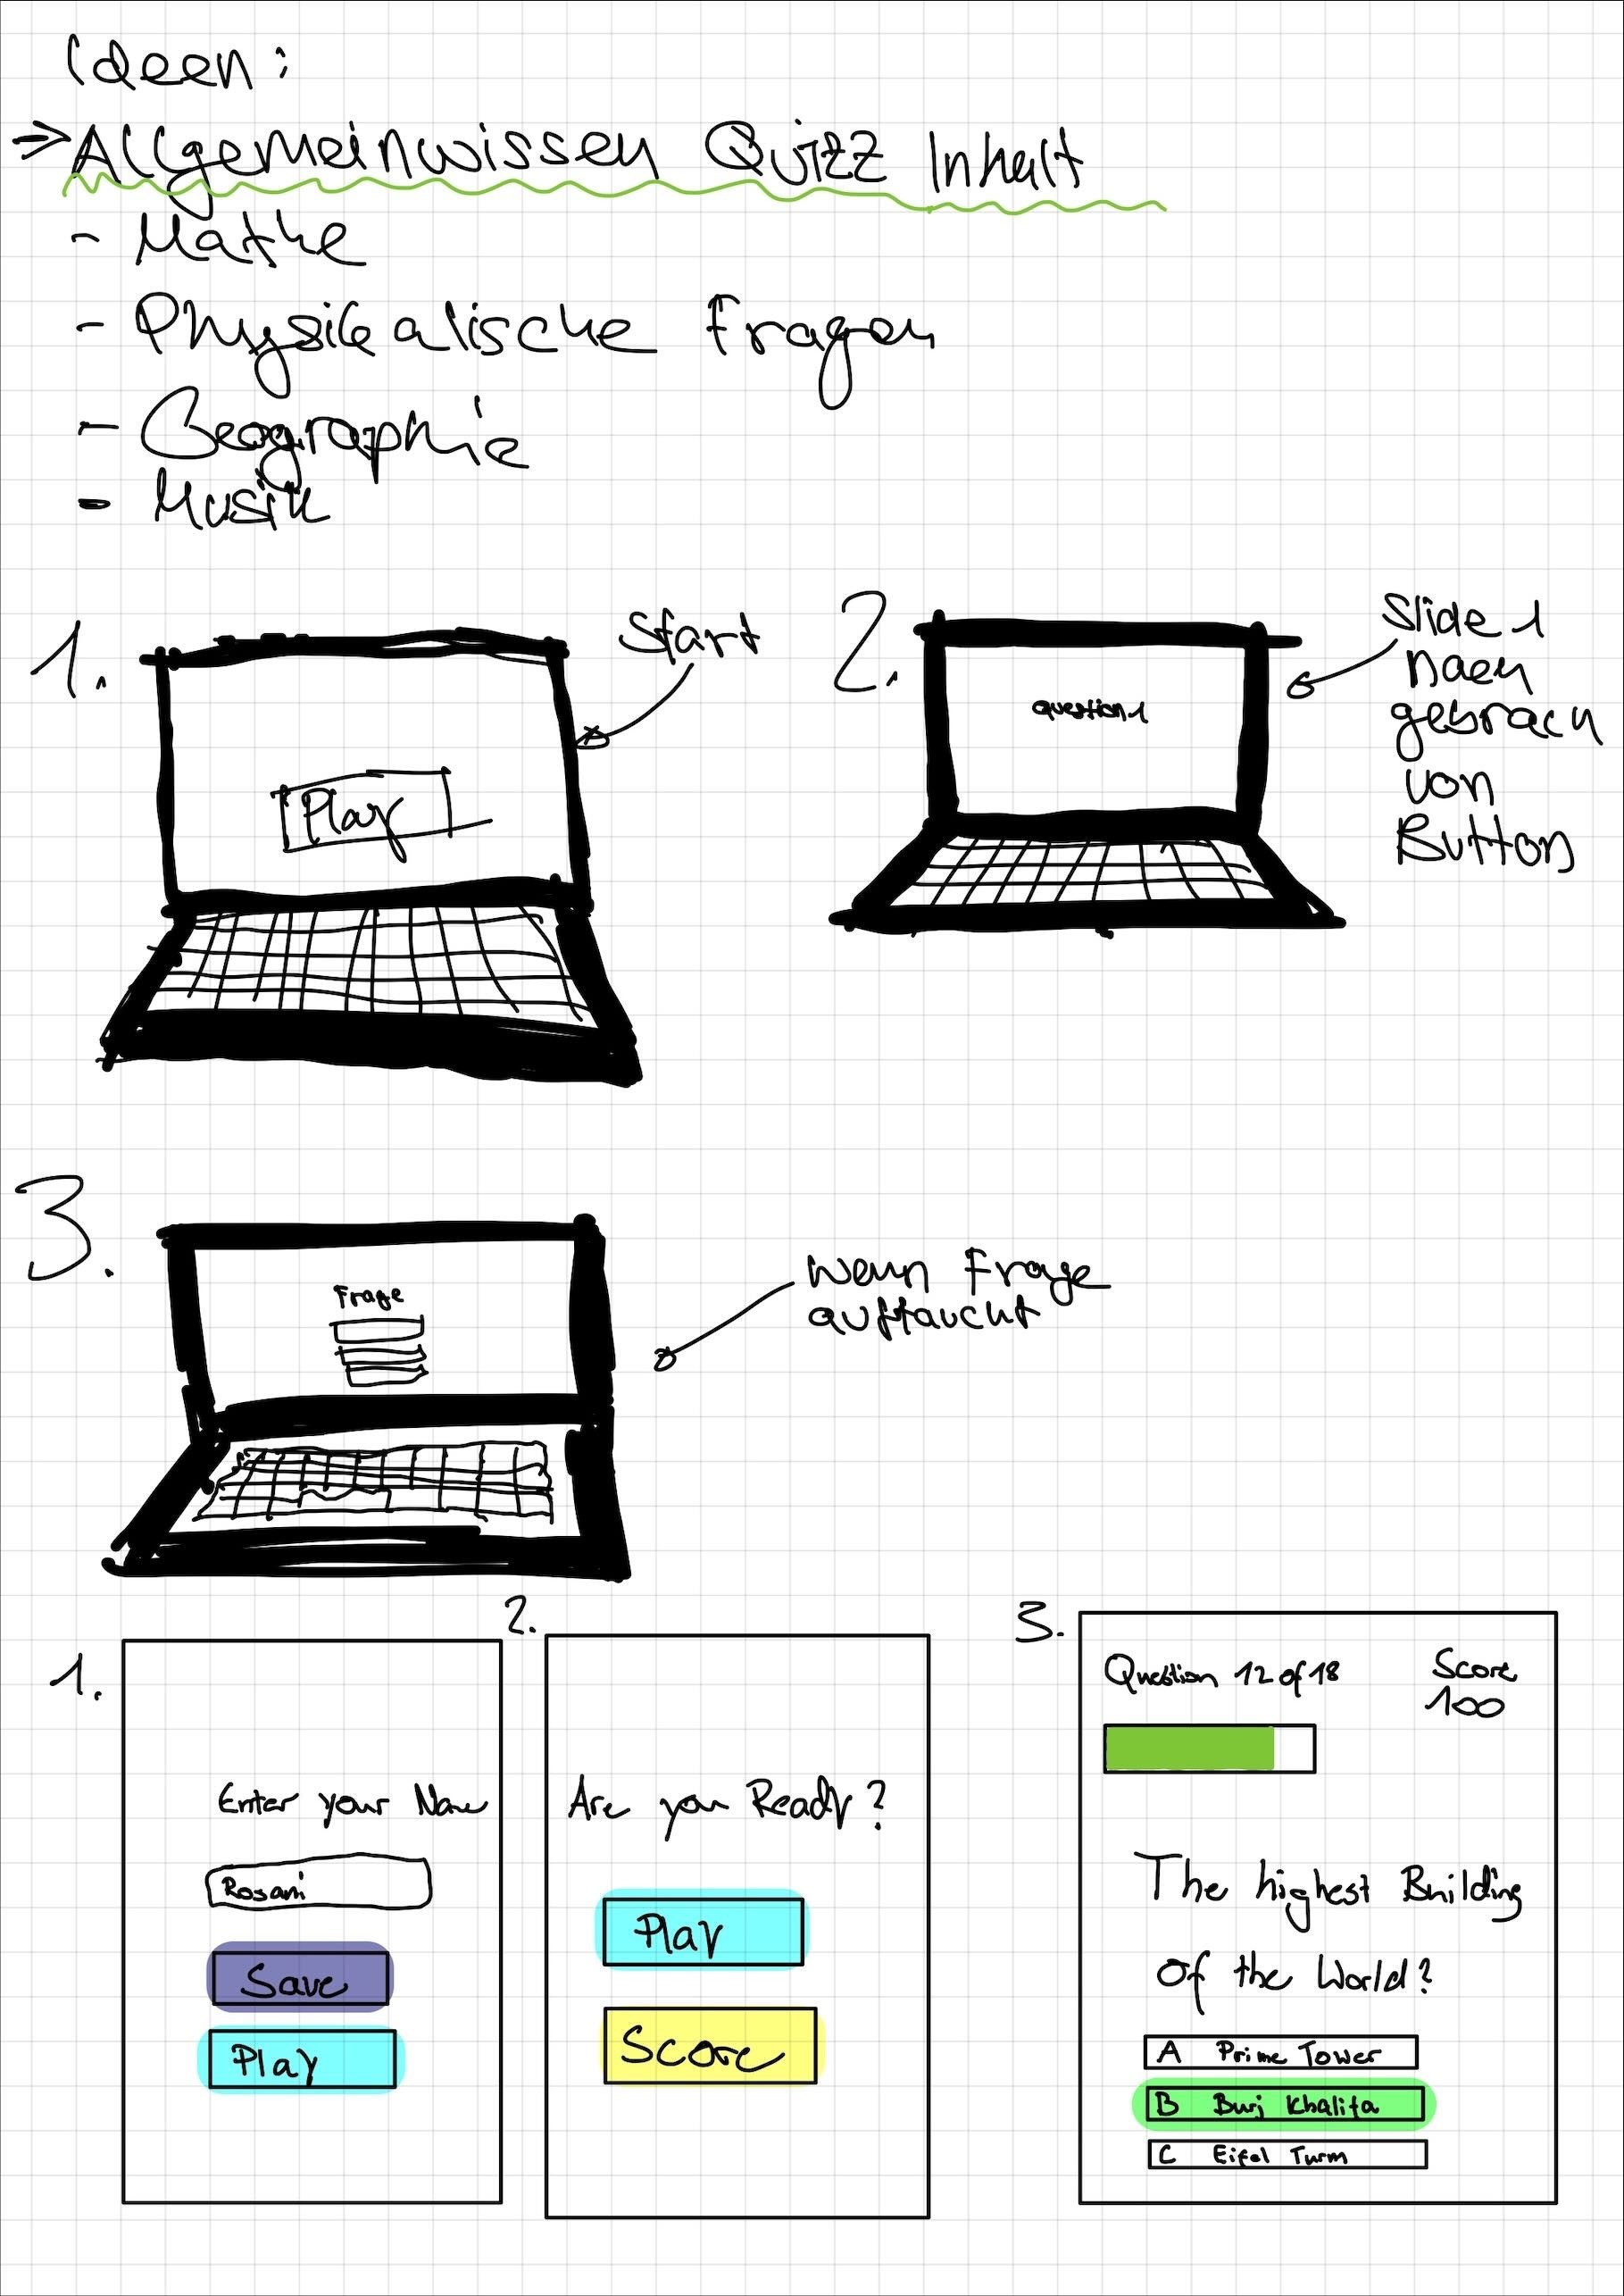 Ideen:
⇒ Allgemeinwissen Quizz Inhalt
- Mathe
- Physikalische Fragen
- Geographie
- Musik
1.
Start
Play
2.
question 1
Slide 1
nach
gebrach
von
Button
3.
Frage
wenn Frage
auftaucht
1.
Enter your Name
Rosani
Save
Play
2.
Are you Ready?
Play
Score
3.
Question 12 of 18
Score
100
The highest Building
Of the World?
A Prime Tower
B Burj Khalifa
C Eifel Turm